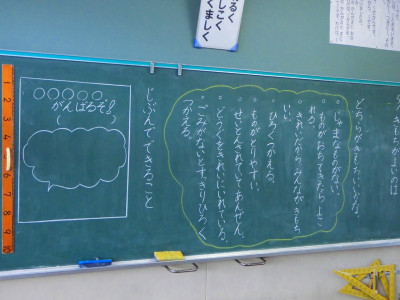 きもちがよいのは
どちらがきもちいいかな。
○じゃまなものがない。
○ものがおちてきたらよご
れる。
○きれいだからみんながきもち
いい。
○ひろくつかえる。
○ものがとりやすい。
○せいとんされていてあんぜん。
○どうぐをきれいにいれている。
○ごみがないとすっきりひろく
つかえる。
じぶんでできること
○○○○○
がんばるぞ!
( )
1 2 3 4 5 6 7 8 9 10